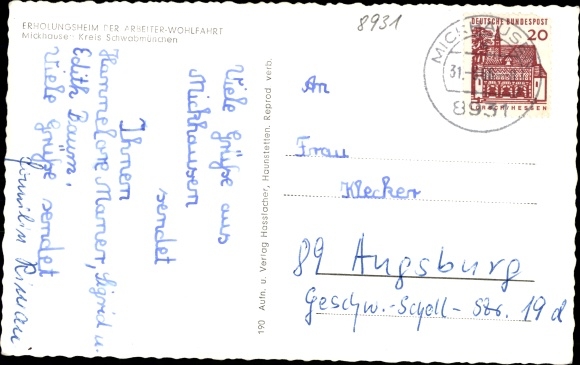 ERHOLUNGSHEIM DER ARBEITER-WOHLFAHRT
Mickhausen Kreis Schwabmünchen
8931
DEUTSCHE BUNDESPOST
20
LORSCH/HESSEN
MICKHAUSEN
31.
8931
Viele Grüße aus
Mickhausen
sendet
Ihnen
Hannelore Marner, Sigrid u.
Edith Baum.
Viele Grüße sendet
190 Aufn. u. Verlag Hossfacher, Haunstetten. Reprod verb.
An
Frau
Klecker
89 Augsburg
Geschw.-Scholl-Str. 19 d